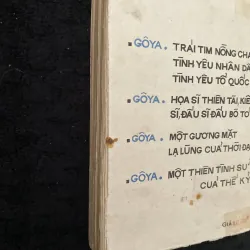 GÔYA. TRÁI TIM NỒNG CHÁ
TÌNH YÊU NHÂN DÂ
TÌNH YÊU TỔ QUỐC
GÔYA. HỌA SĨ THIÊN TÀI, KIẾ
SĨ, ĐẤU SĨ ĐẤU BÒ TÓ
GÔYA. MỘT GƯƠNG MẶT
LẠ LÙNG CUẢ THỜI ĐẠ
GÔYA. MỘT THIÊN TÌNH SỬ
CUẢ THẾ KỶ